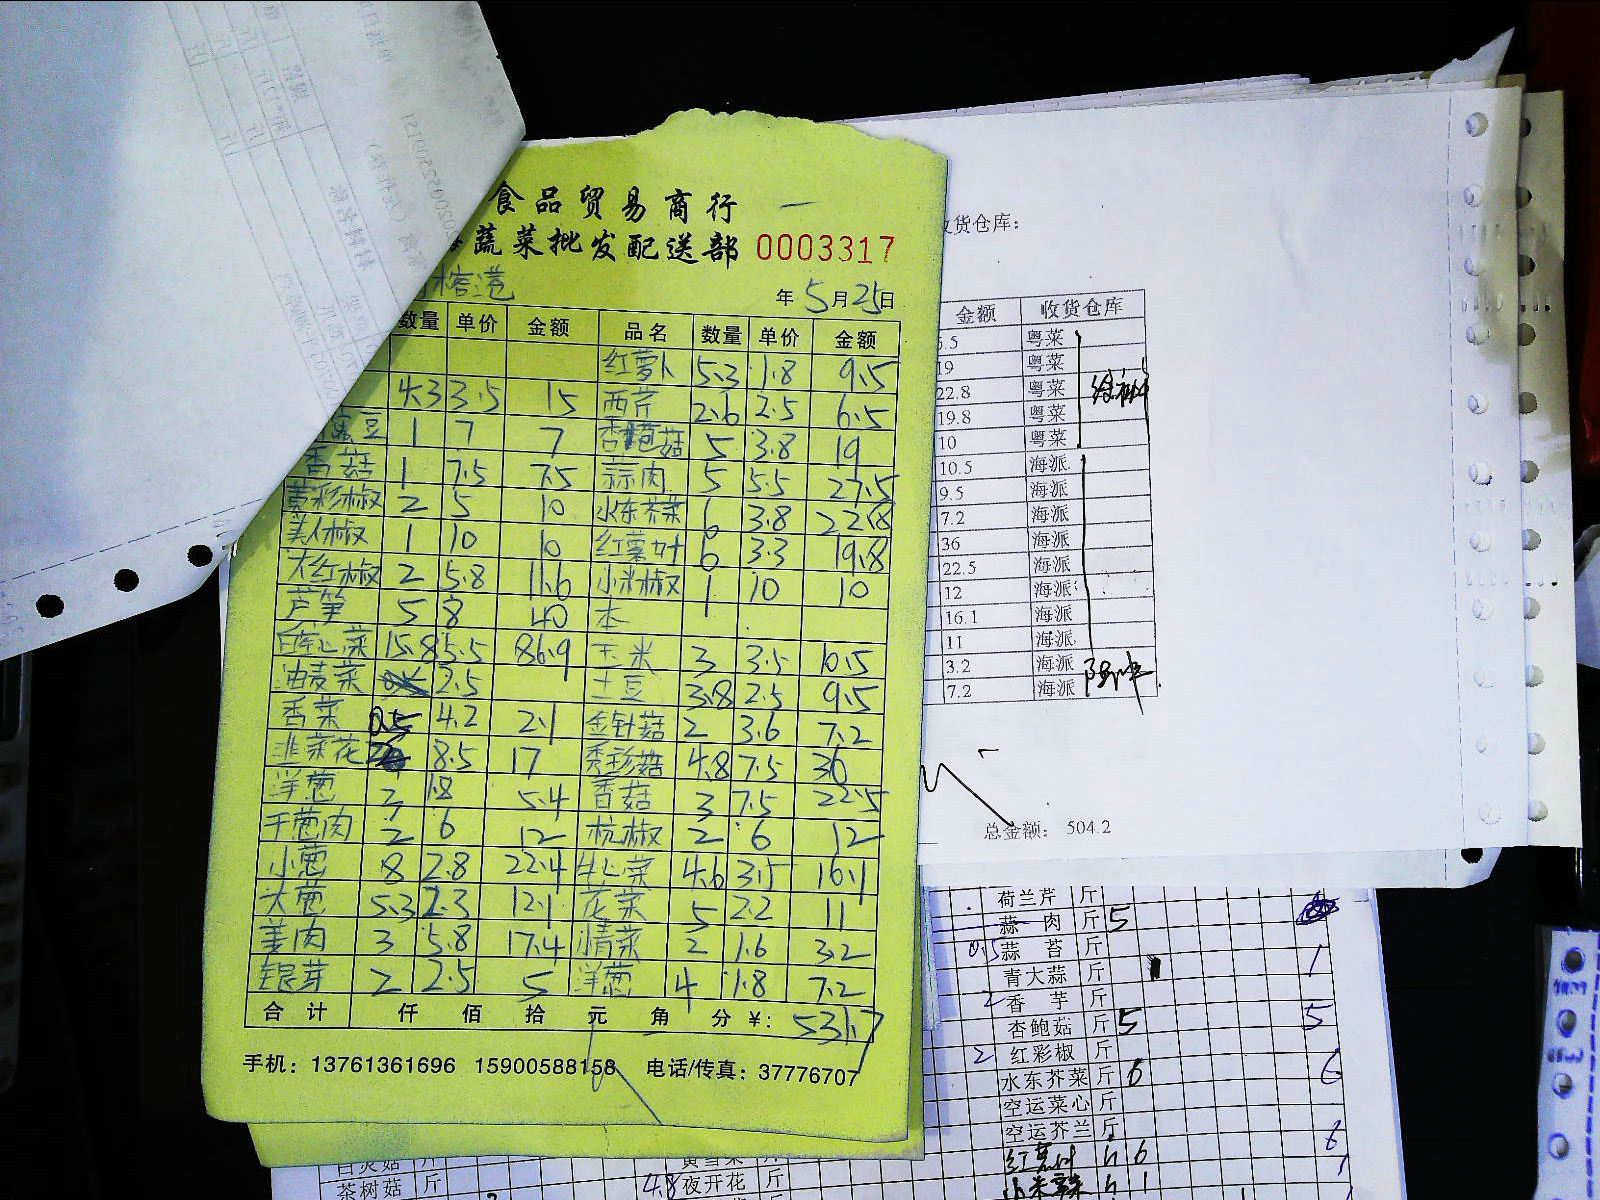 食品贸易商行
蔬菜批发配送部 0003317
年 5月25日
数量 单价 金额 品名 数量 单价 金额
红萝卜 5.3 1.8 9.5
4.3 3.5 15 西芹 2.6 2.5 6.5
豆 1 7 7 杏鲍菇 5 3.8 19
香菇 1 7.5 7.5 蒜肉 5 5.5 27.5
黄彩椒 2 5 10 水东芥菜 6 3.8 22.8
美人椒 1 10 10 红薯叶 6 3.3 19.8
大红椒 2 5.8 11.6 小米椒 1 10 10
芦笋 5 8 40 本
15.8 5.5 86.9 玉米 3 3.5 10.5
油麦菜 2.5 土豆 3.8 2.5 9.5
香菜 0.5 4.2 2.1 金针菇 2 3.6 7.2
韭菜花 2 8.5 17 秀珍菇 4.8 7.5 36
洋葱 3 1.8 5.4 香菇 3 7.5 22.5
干葱肉 2 6 12 杭椒 2 6 12
小葱 8 2.8 22.4 牛心菜 4.6 3.5 16.1
大葱 5.3 2.3 12.1 花菜 5 2.2 11
姜肉 3 5.8 17.4 2 1.6 3.2
银芽 2 2.5 5 洋葱 4 1.8 7.2
合计 仟 佰 拾 元 角 分 ¥: 531.7
手机：13761361696 15900588158 电话/传真：37776707
收货仓库：
金额 收货仓库
5.5 粤菜
19 粤菜
22.8 粤菜
19.8 粤菜
10 粤菜
10.5 海派
9.5 海派
7.2 海派
36 海派
22.5 海派
12 海派
16.1 海派
11 海派
3.2 海派
7.2 海派
总金额： 504.2
荷兰芹 斤
蒜肉 斤 5
0.5 蒜苔 斤 1
青大蒜 斤
2 香芋 斤
杏鲍菇 斤 5 5
2 红彩椒 斤
水东芥菜 斤 6 6
空运菜心 斤
空运芥兰 斤
红薯叶 斤 6 6
小米辣 斤 1 1
白灵菇 斤
茶树菇 斤 4.8 夜开花 斤